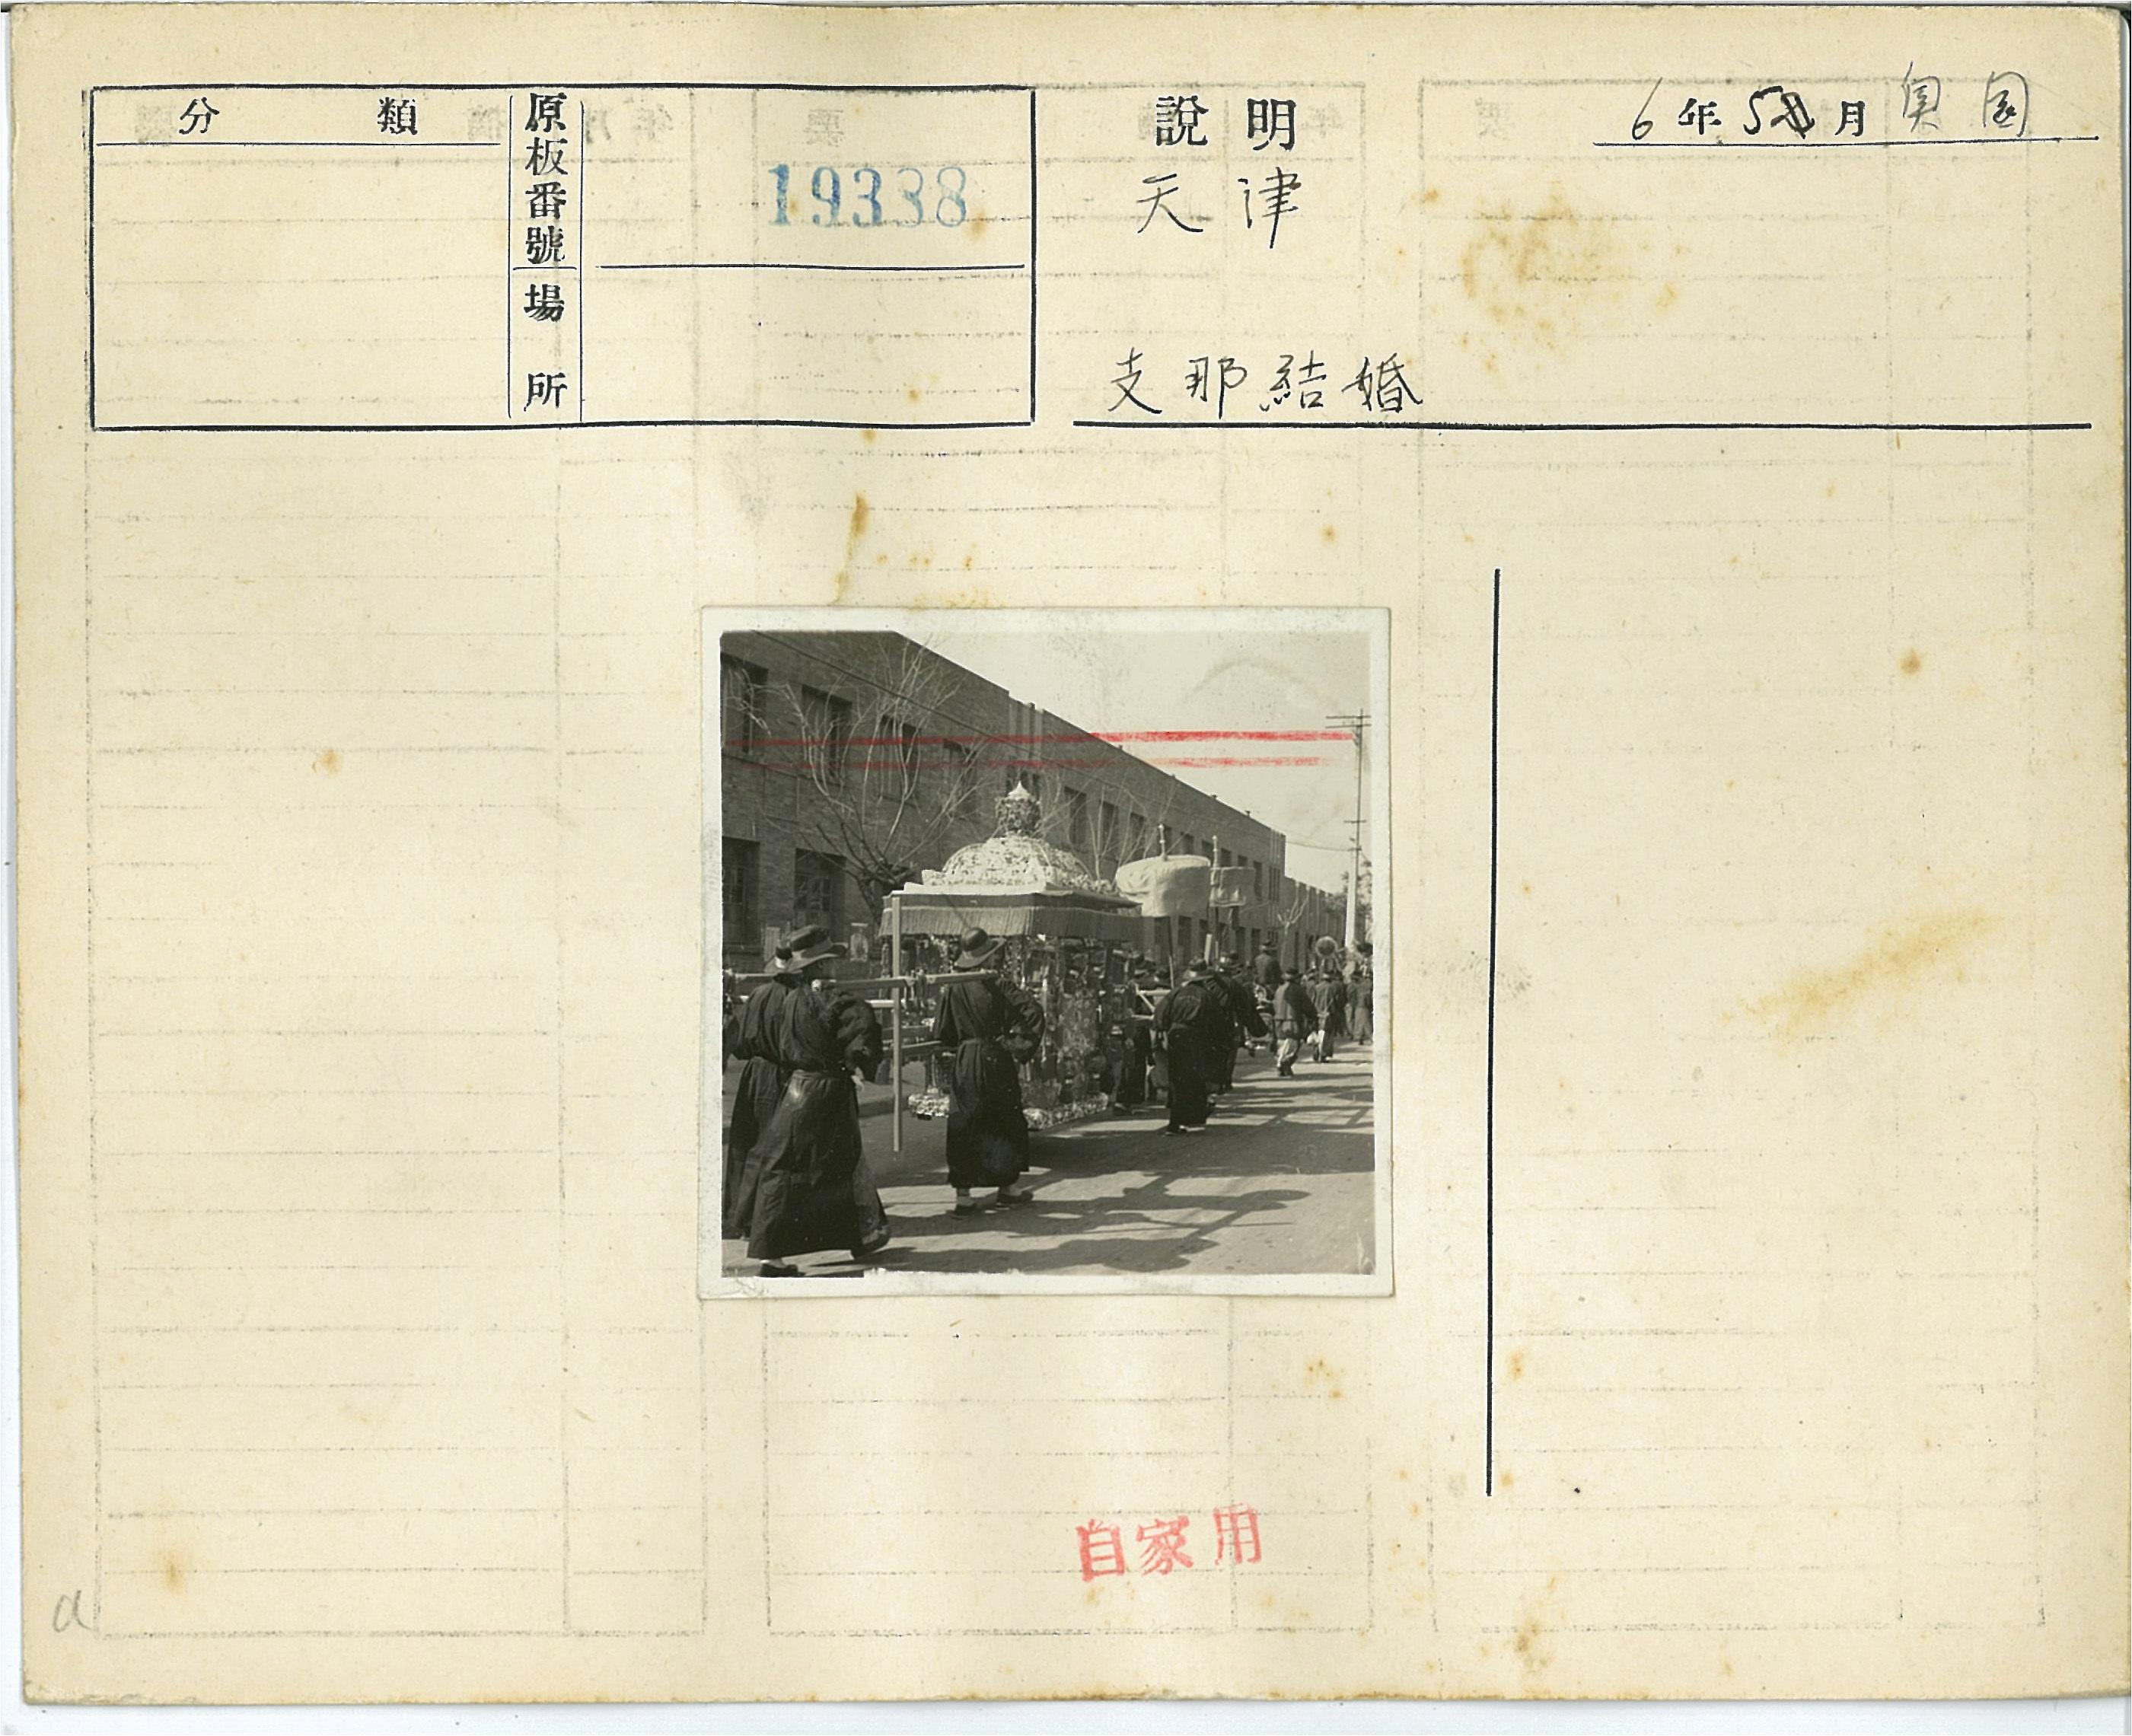 分類
原板番號
19338
場所
說明
6年5月
天津
支那結婚
自家用
a